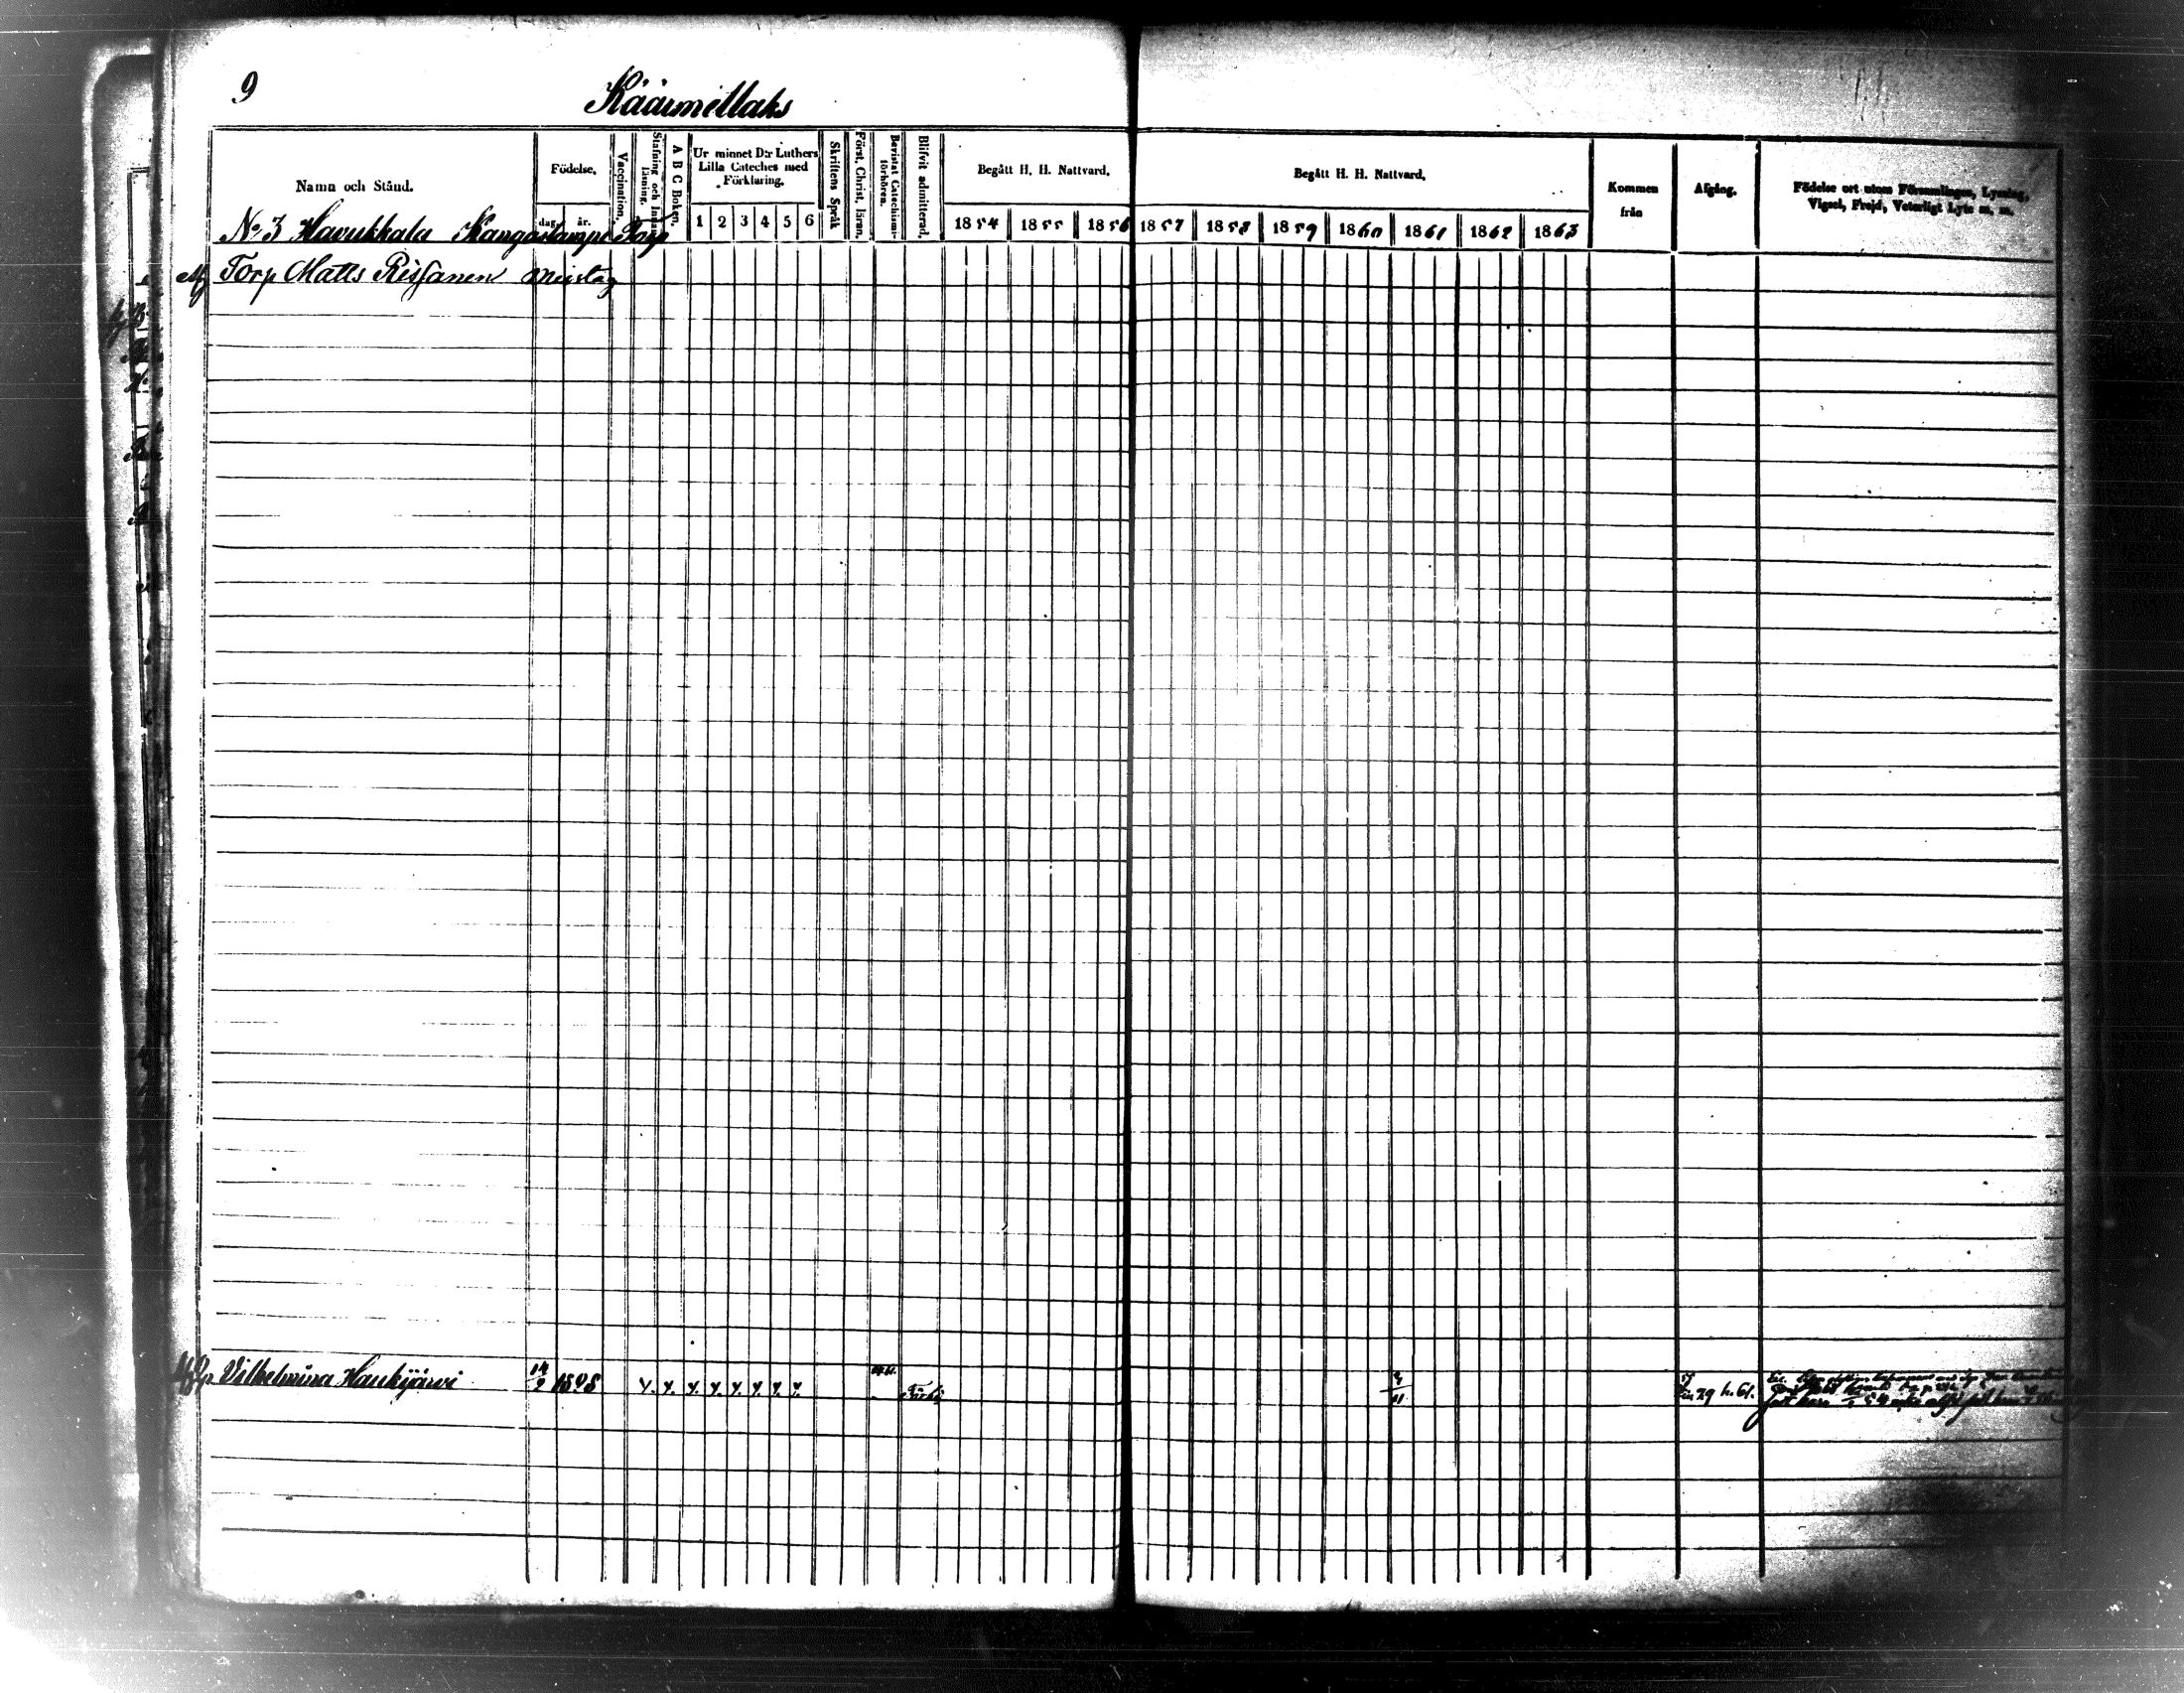 9
Käärmellaks
Namn och Stånd.
Födelse.
dag. år.
Vaccination.
Stafning och Innanläsning.
A B C Boken.
Ur minnet D:r Luthers
Lilla Cateches med
Förklaring.
1 2 3 4 5 6
Skriftens Språk
Först. Christ. läran.
Bevistat Catechismi-
förhören.
Blifvit admitterad.
Begått H. H. Nattvard.
1854 1855 1856
Begått H. H. Nattvard.
1857 1858 1859 1860 1861 1862 1863
Kommen
från
Afgång.
Födelse ort utom Församlingen, Lysning,
Vigsel, Frejd, Veterligt Lyte m. m.
No 3 Havukkala Kangaslampi Torp
Torp Matts Rissanen
Vilhelmina Haukijärvi 14/2 1808 61.